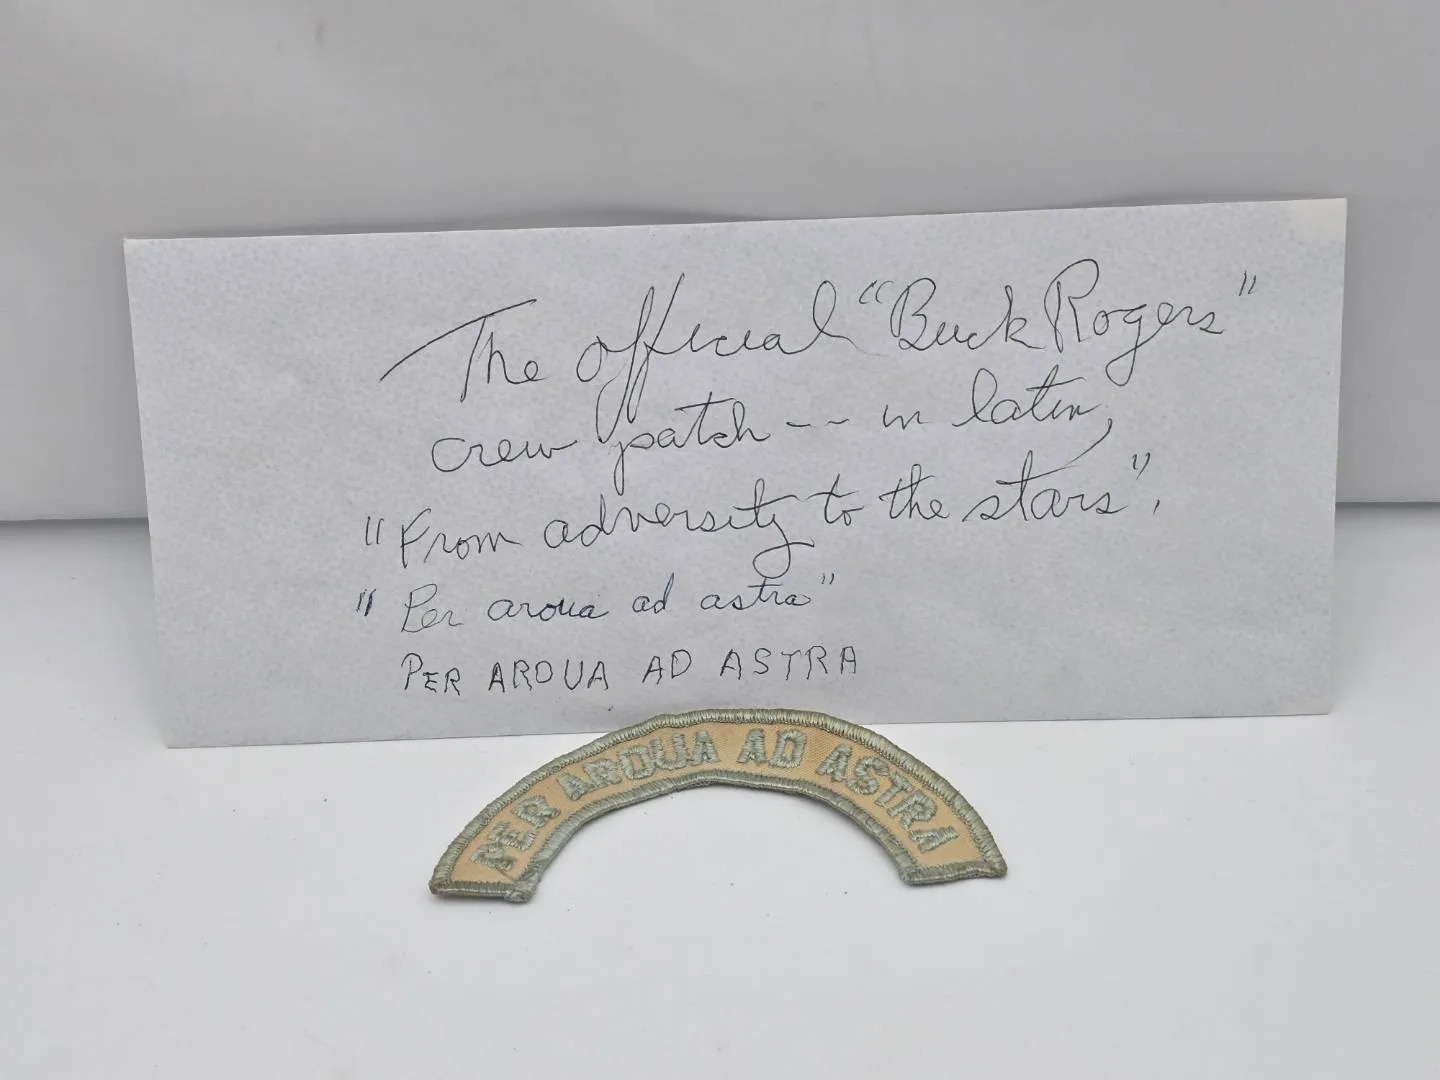 The official "Buck Rogers"
crew patch -- in latin,
"From adversity to the stars".
"Per ardua ad astra"
PER ARDUA AD ASTRA
PER ARDUA AD ASTRA